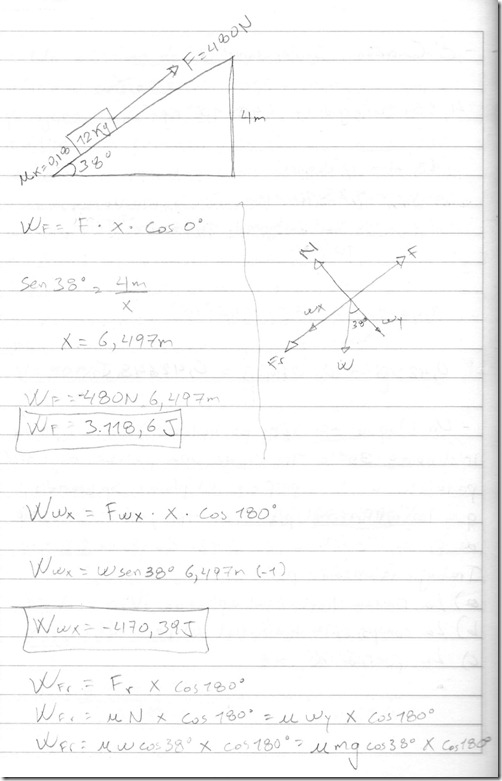 F=480N
12Kg
μk=0,18
38°
4m
WF = F · x · cos 0°
sen 38° = 4m / x
x = 6,497m
WF = 480N 6,497m
WF = 3.118,6 J
N
F
wx
38°
wy
Fr
W
Wwx = Fwx · x · cos 180°
Wwx = w sen 38° 6,497m (-1)
Wwx = -470,39J
WFr = Fr x cos 180°
WFr = μ N x cos 180° = μ wy x cos 180°
WFr = μ w cos 38° x cos 180° = μ mg cos 38° x cos 180°